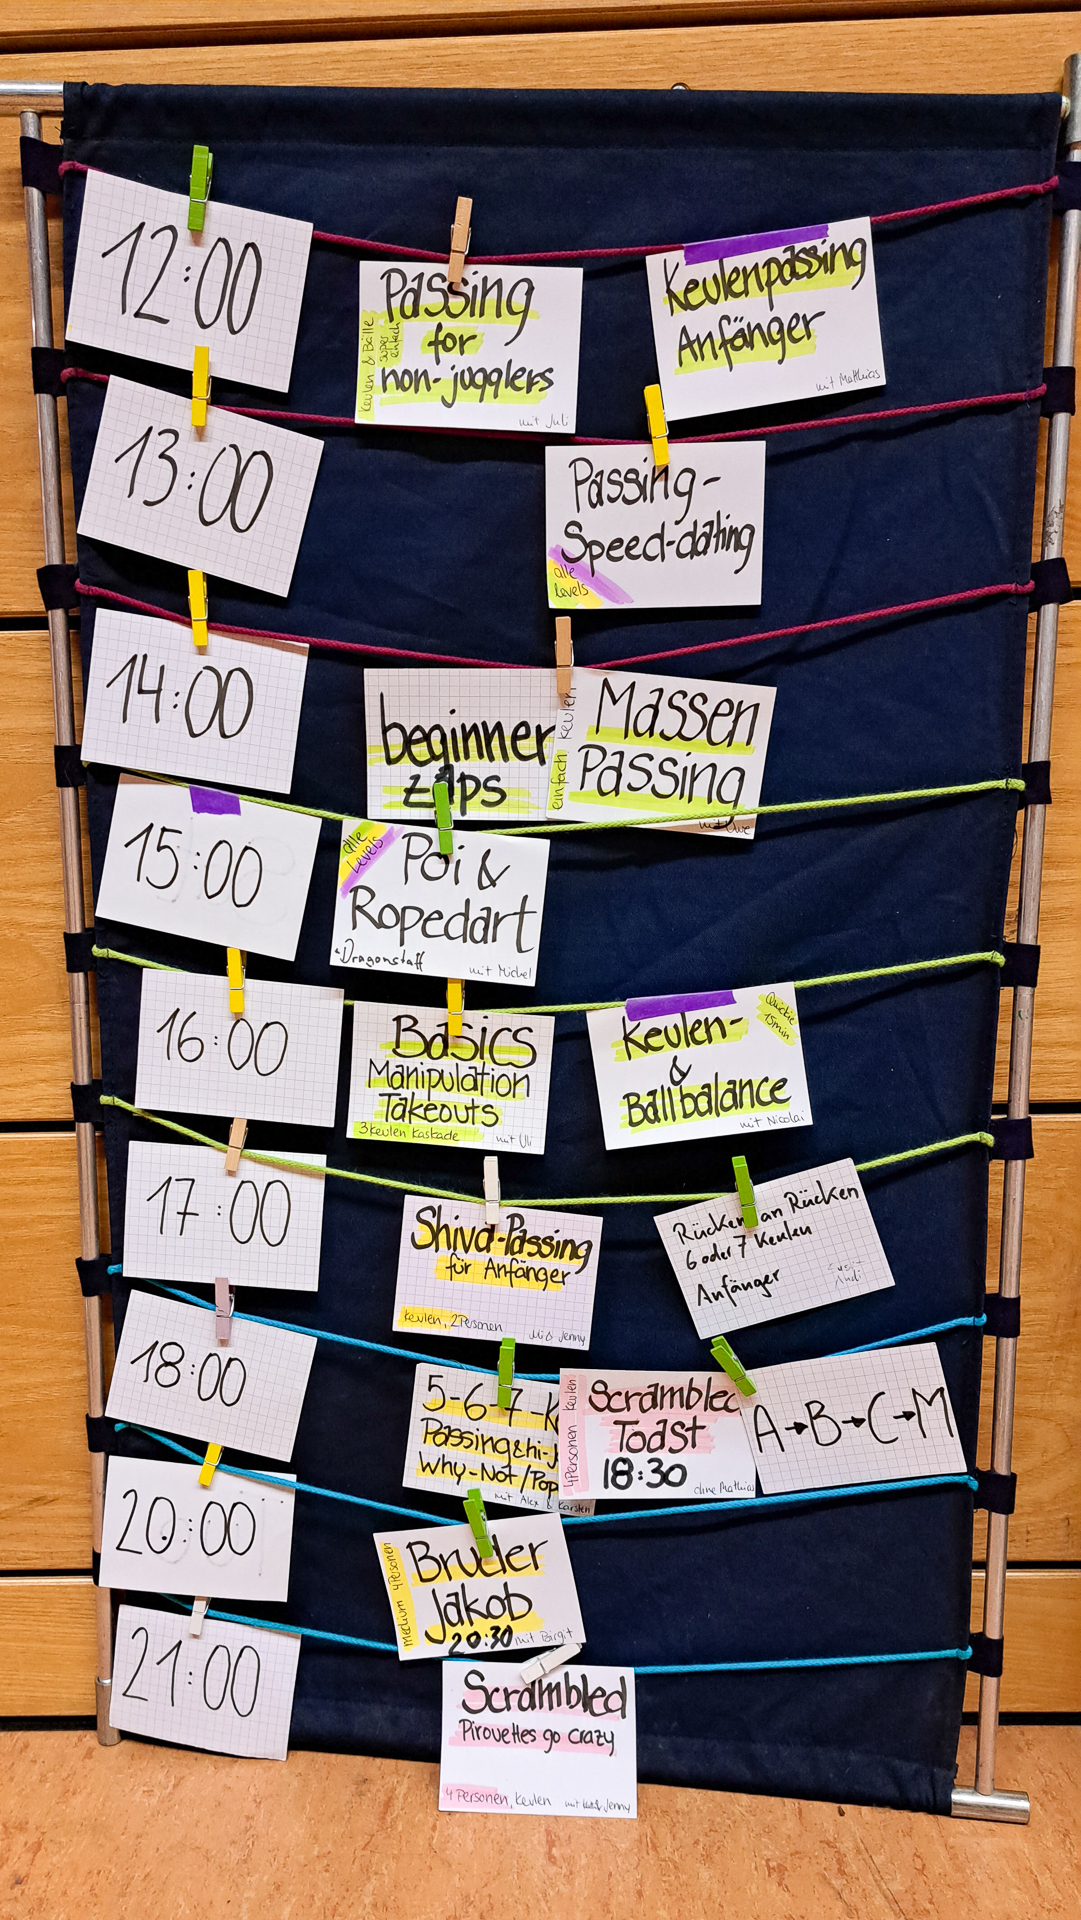 12:00
Passing
for
non-jugglers
Keulen & Bälle
super
einfach
mit Juli
Keulenpassing
Anfänger
mit Matthias
13:00
Passing-
Speed-dating
alle
levels
14:00
beginner
zaps
einfach Keulen
Massen
Passing
mit Uwe
15:00
alle
Levels
Poi &
Ropedart
Dragonstaff
mit Michel
16:00
Basics
Manipulation
Takeouts
3 Keulen Kaskade
mit Uli
Keulen-
&
Ballbalance
Quickie
15min
mit Nicolai
17:00
Shiva-Passing
für Anfänger
Keulen, 2 Personen
Jenny
Rücken an Rücken
6 oder 7 Keulen
Anfänger
Andi
18:00
5-6-7-K
Passing & hi-
Why-Not/Pop
mit Alex & Karsten
4 Personen Keulen
Scrambled
Toast
18:30
ohne Mathias
A→B→C→M
20:00
medium 4 Personen
Bruder
Jakob
20:30
mit Birgit
21:00
Scrambled
Pirouettes go crazy
4 Personen, Keulen
mit
Jenny